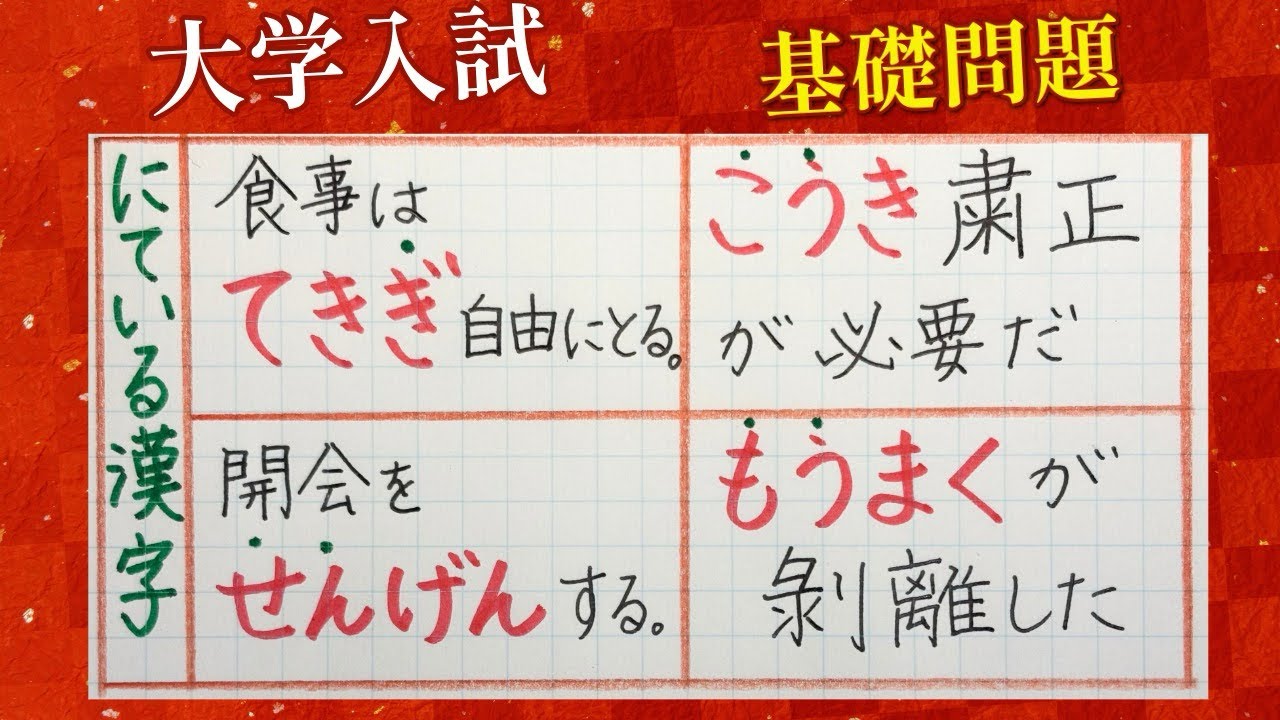 大学入試
基礎問題
にている漢字
食事は
てきぎ自由にとる。
こうき粛正
が必要だ
開会を
せんげんする。
もうまくが
剥離した